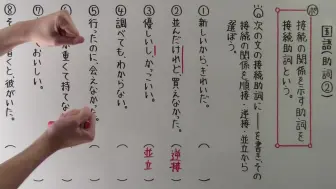 国語(助詞②)
接続の関係を示す助詞を
接続助詞という。
次の文の接続助詞に――を書き、その
接続の関係を順接・逆接・並立から
選ぼう。
①新しいから、きれいだ。（　）
②並んだけれど、買えなかった。（逆接）
③優しいし、かっこいい。（並立）
④調べても、わからない。（　）
⑤行ったのに、会えなかった。（　）
が重くて持てな（　）
おいしい。（　）
くと、彼がいた。（　）